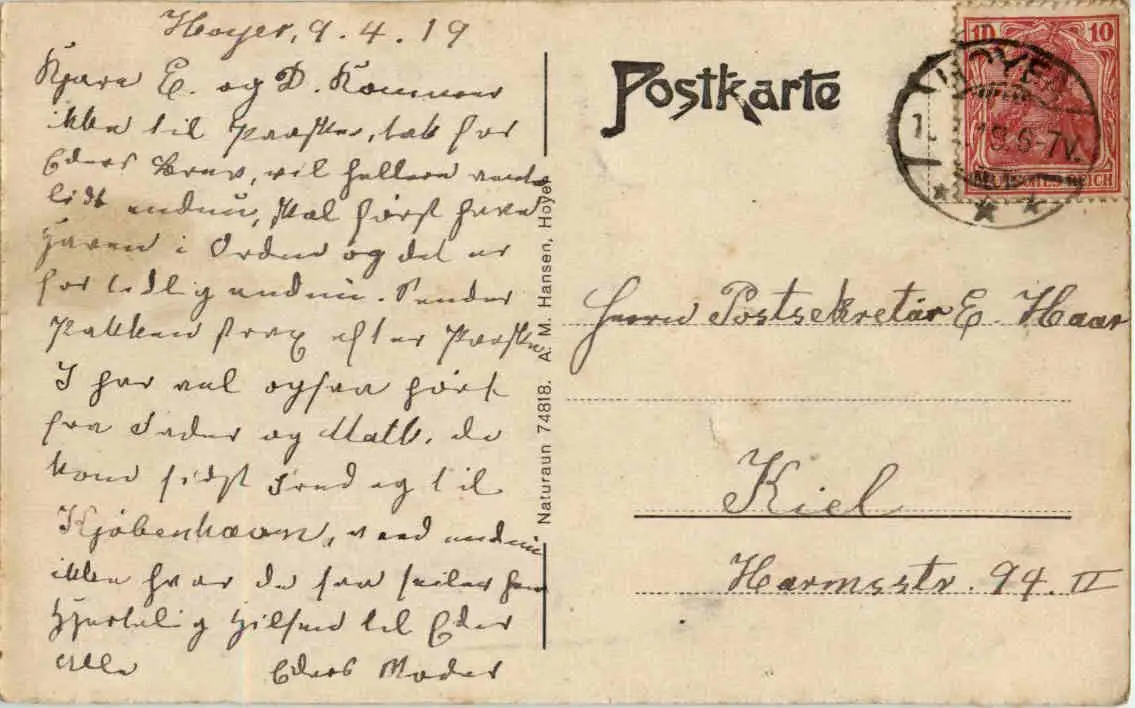 Hoyer, 9.4.19
Kjære E. og D. Kommer
ikke til Paaske, tak for
Eders Brev, vil hellere vente
lidt endnu, skal først have
Haven i Orden og det er
for tidlig endnu. Sender
Pakken strax efter Paaske
I har vel ogsaa hørt
fra og de
kom sidst Fredag til
Kjøbenhavn, veed endnu
ikke hvor de saa seiler hen
Hjertelig Hilsen til Eder
Alle Eders Moder
Naturaun 74818. A. M. Hansen, Hoyer
Postkarte
10 10
DEUTSCHES REICH
HOYER
19.6-7V.
Herrn Postsekretär E. Haar
Kiel
Harmsstr. 94. II